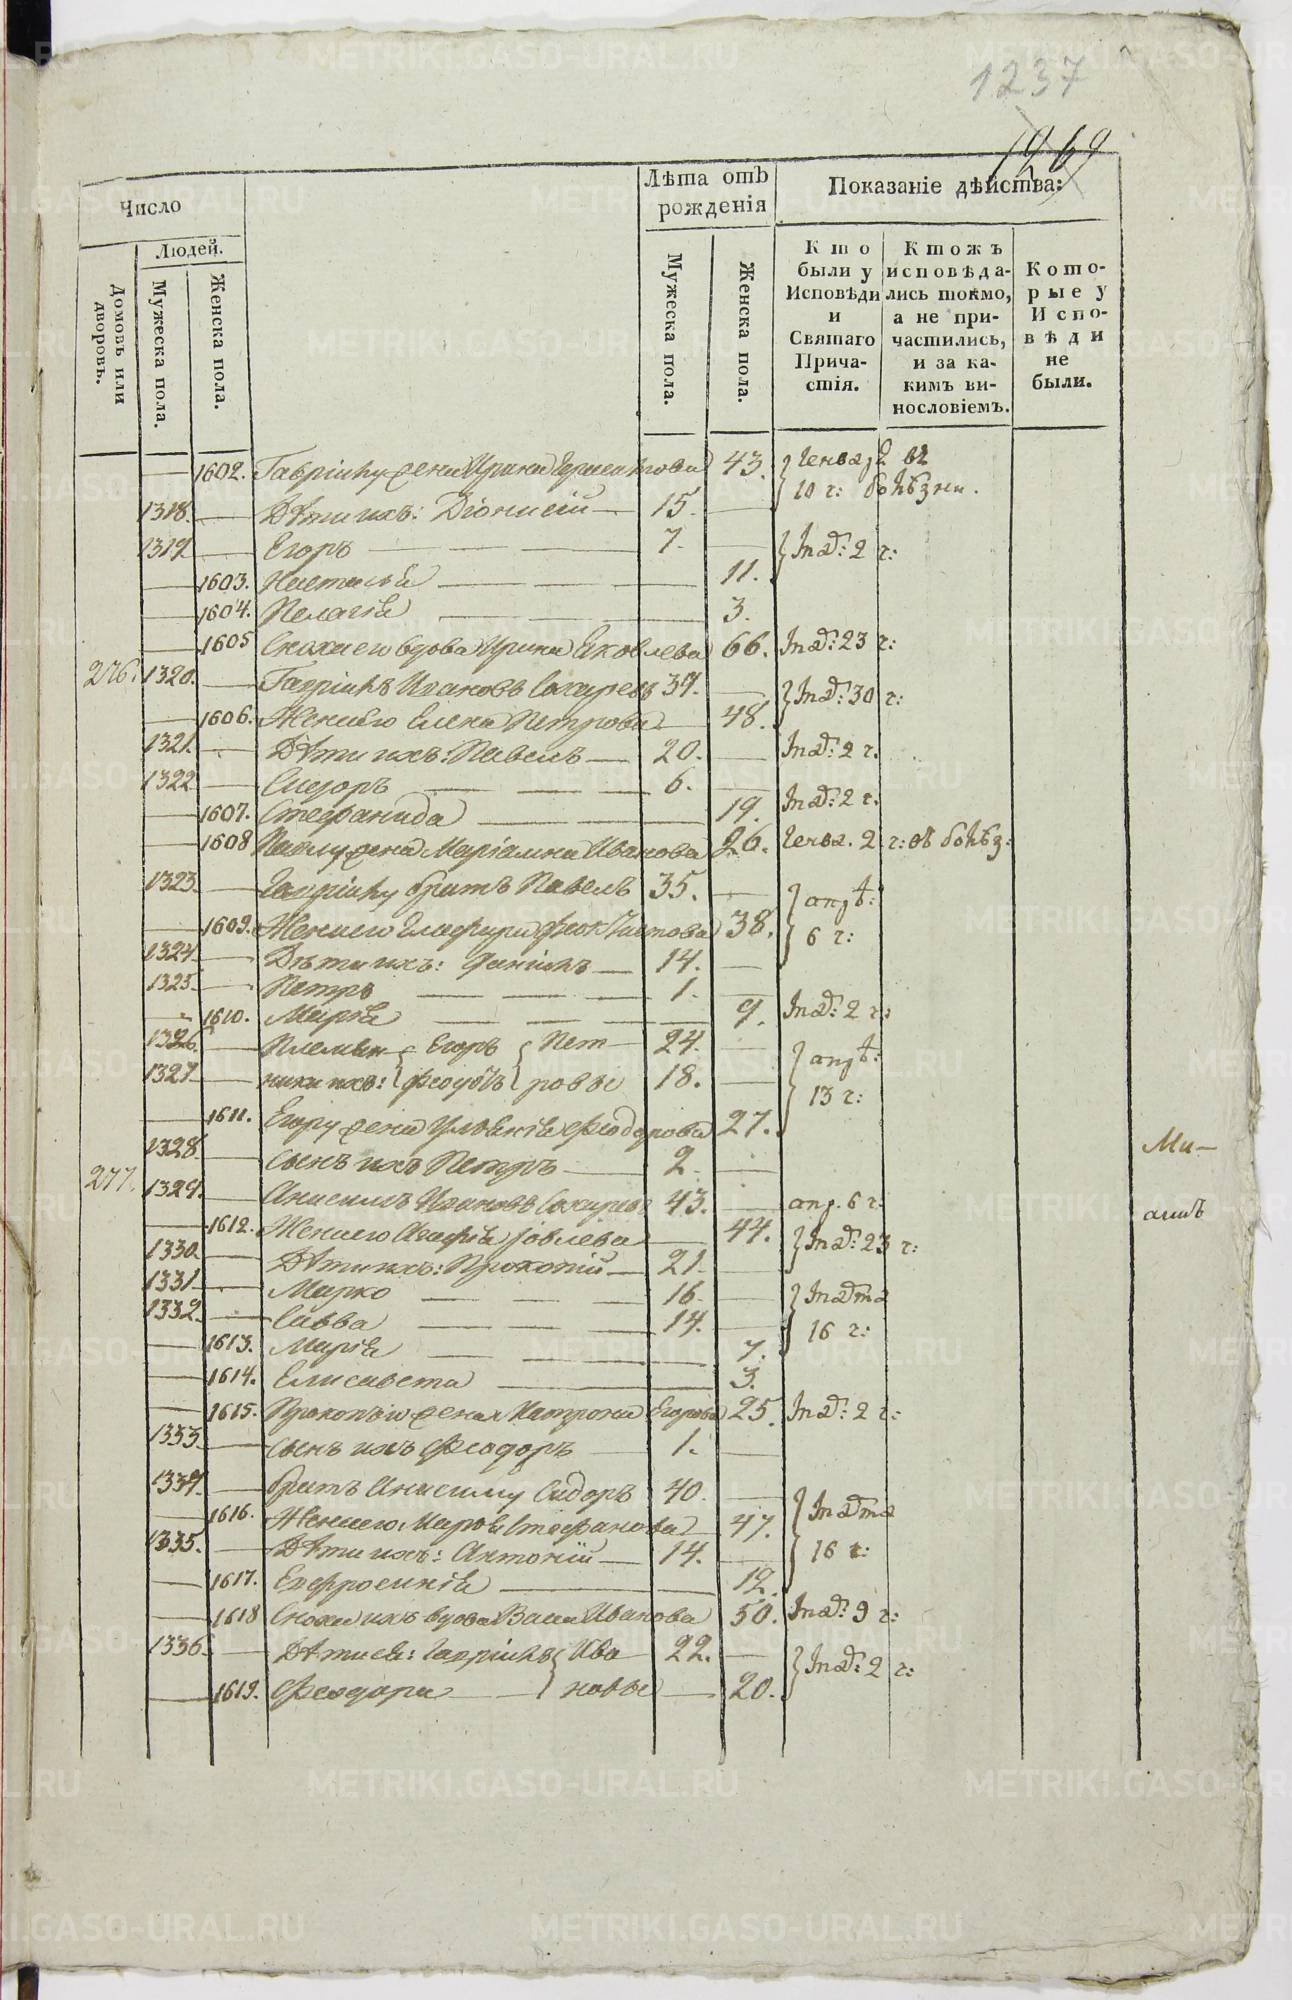 1237
1269
Число
Людей.
Домовъ или дворовъ.
Мужеска пола.
Женска пола.
Лѣта отъ рожденія
Мужеска пола.
Женска пола.
Показаніе дѣйства:
Кто были у Исповѣди и Святаго Причастія.
Ктожъ исповѣдались токмо, а не причастились, и за какимъ винословіемъ.
Которые у Исповѣди не были.
1602. Гавріилу жена Ирина 43. Генваря въ
10 ч: болѣзни.
1318. Дѣти ихъ: Діонисій 15.
1319. Егоръ 7. 2 ч:
1603. Настасья 11.
1604. Пелагія 3.
1605 Сноха его вдова Ирина Яковлева 66. 23 ч:
276. 1320. Гавріилъ Ивановъ 37. 30 ч:
1606. Жена его Елена Петрова 48.
1321. Дѣти ихъ: Павелъ 20. 2 ч.
1322. Сидоръ 6.
1607. Стефанида 19. 2 ч.
1608 Павлу жена Маріамна Иванова 26. Генва. 2 ч: въ болѣз:
1323. Гавріилу братъ Павелъ 35. апрѣ:
1609. Жена его Глафира 38. 6 ч:
1324. Дѣти ихъ: Даніилъ 14.
1325. Петръ 1.
1610. Марія 9. 2 ч:
1326. Племян- Егоръ Пет- 24. апрѣ:
1327. ники ихъ: Феодоръ ровы 18. 13 ч:
1611. Егору жена Феодорова 27.
1328. сынъ ихъ Петръ 2.
277. 1329. Анисимъ Ивановъ 43. апр. 6 ч:
1612. Жена его Іовлева 44. 23 ч:
1330. Дѣти ихъ: Прокопій 21.
1331. Марко 16.
1332. Савва 14. 16 ч:
1613. Марія 7.
1614. Елисавета 3.
1615. Прокопью жена Матрона Егорова 25. 2 ч:
1333. сынъ ихъ Феодоръ 1.
1334. братъ Анисиму Сидоръ 40.
1616. Жена его Марья Стефанова 47. 16 ч:
1335. Дѣти ихъ: Антоній 14.
1617. Евфросинія 12.
1618 Сноха ихъ вдова Васса Иванова 50. 9 ч:
1336. Дѣти ея: Гавріилъ Ива- 22. 2 ч:
1619. Феодора новы 20.
Ми-
аилъ
METRIKI.GASO-URAL.RU